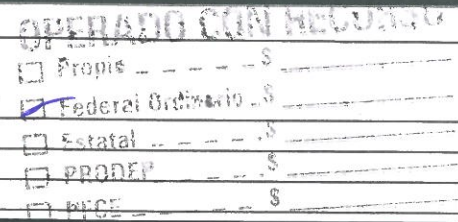 OPERADO CON RECURSO
Propio _ _ _ _ _ $
Federal Ordinario _ $
Estatal _ _ _ _ _ $
PRODEP _ _ _ _ $
PFCE _ _ _ _ $